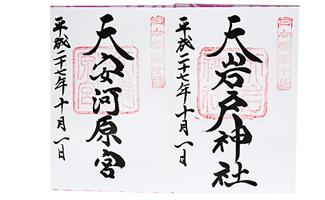 天岩戸神社
平成二十七年十月一日
天安河原宮
平成二十七年十月一日